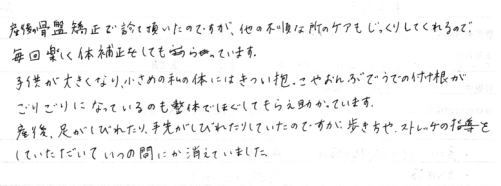 産後骨盤矯正で診て頂いたのですが、他の不順な所のケアもじっくりしてくれるので
毎回楽しく体補正をしてもらっています。
子供が大きくなり、小さめの私の体にはきつい抱っこやおんぶでうでの付け根が
ごりごりになっているのも整体でほぐしてもらえ助かっています。
産後、足がしびれたり、手先がしびれたりしていたのですが、歩き方や、ストレッチの指導を
していただいていつの間にか消えていました。